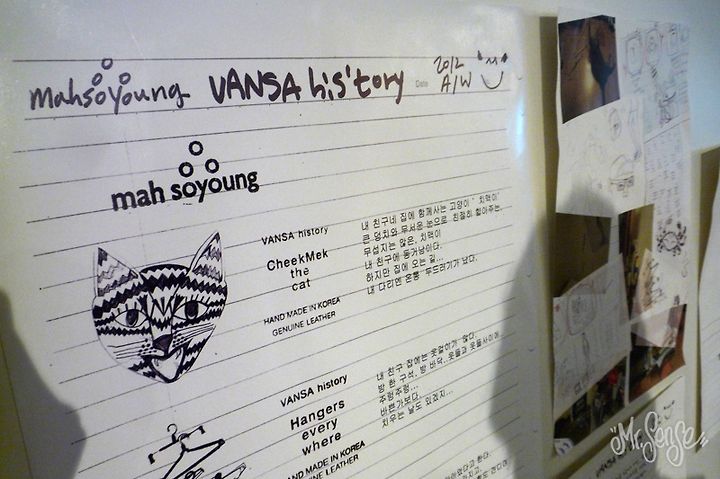 mahsoyoung VANSA his'tory Date 2012 A/W
mah soyoung
VANSA history
CheekMek
the
cat
HAND MADE IN KOREA
GENUINE LEATHER
내 친구네 집에 함께사는 고양이 " 치맥이"
큰 덩치와 무서운 눈으로 친절히 핥아주는,
무섭지는 않은, 치맥이
내 친구에 동거냥이다.
하지만 집에 오는 길...
내 다리엔 온통 두드러기가 났다.
VANSA history
Hangers
every
where
HAND MADE IN KOREA
GENUINE LEATHER
내 친구 집에는 옷걸이가 많다.
방 한 구석, 방 바닥, 옷들과 옷들사이에...
주렁주렁...
바쁜가보다...
치우는 날도 있겠지...
VANSA
"Mr.Sense"